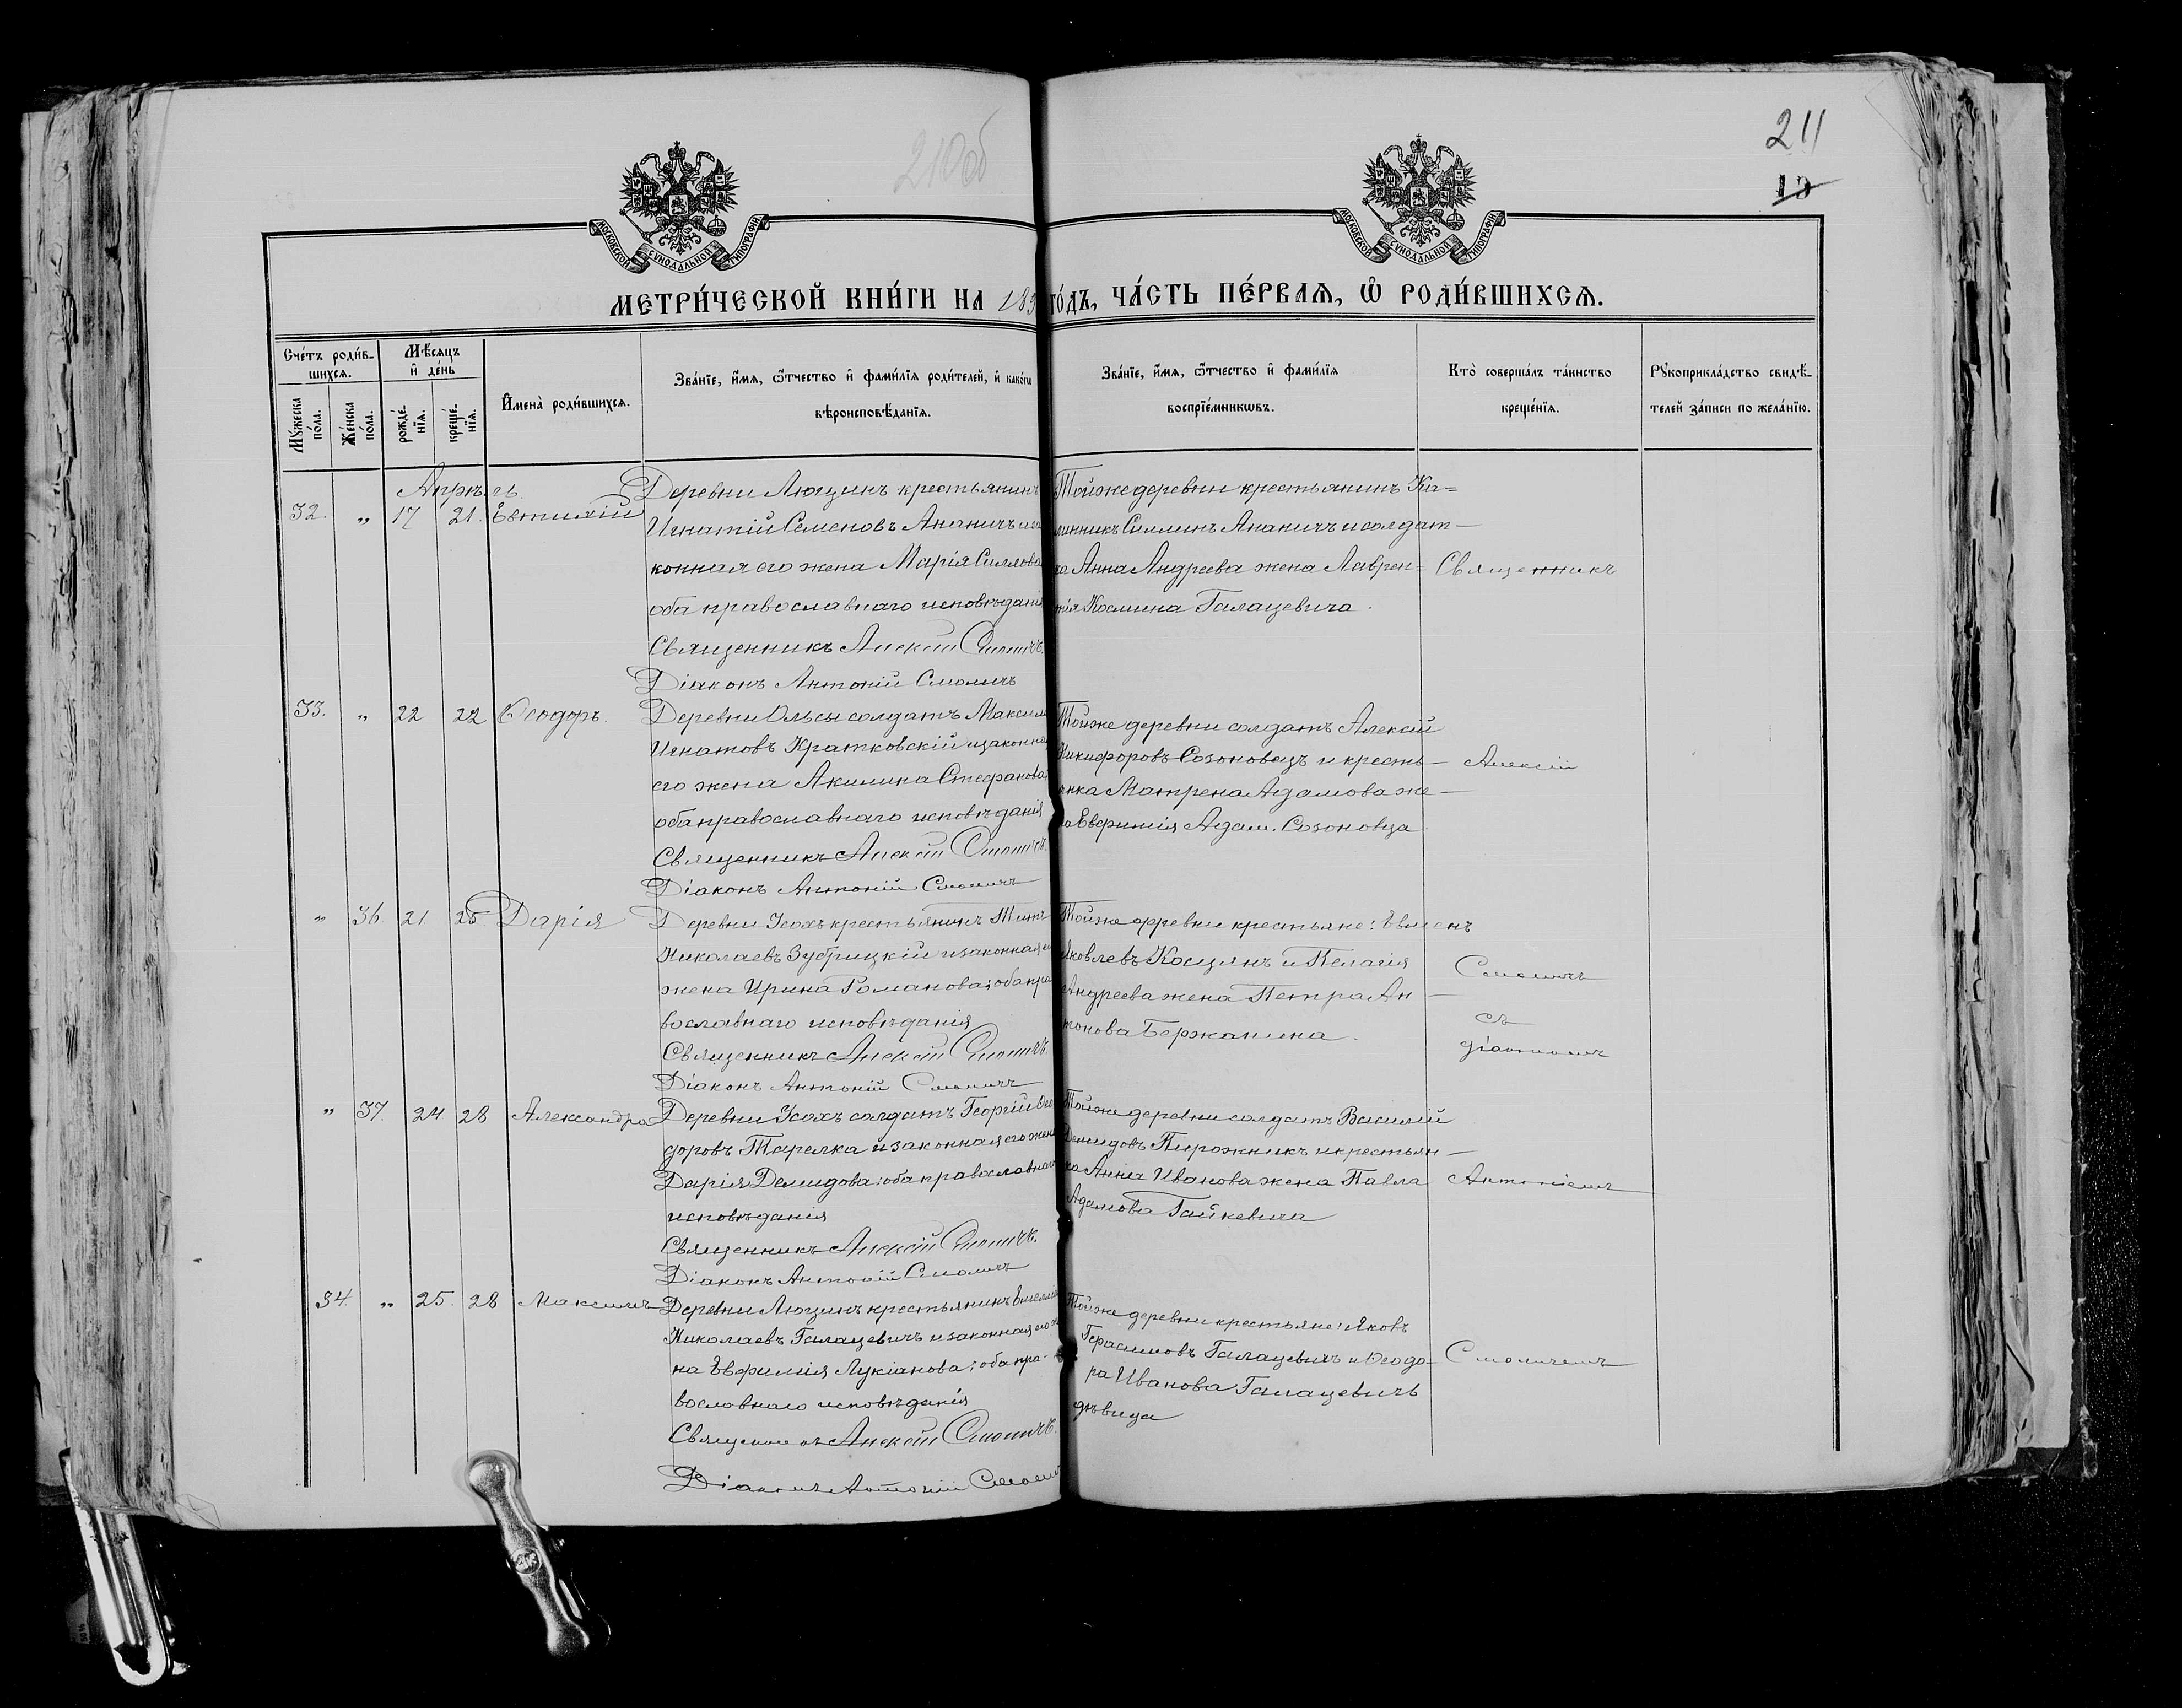 210об
211
13
МОСКОВСКОЙ СѴНОДАЛЬНОЙ ТИПОГРАФІИ
МОСКОВСКОЙ СѴНОДАЛЬНОЙ ТИПОГРАФІИ
МЕТРИ́ЧЕСКОЙ КНИ́ГИ НА 189 ГО́ДЪ, ЧА́СТЬ ПЕ́РВАЯ, Ѡ҆ РОДИ́ВШИХСЯ.
Сче́тъ роди́в-
шихся.
Му́жеска по́ла.
Же́нска по́ла.
Мѣ́сяцъ и҆ де́нь
рожде́-нїя.
креще́-нїя.
И҆мена̀ роди́вшихся.
Зва́нїе, и҆́мя, ѻ҆́тчество и҆ фами́лїя роди́телей, и҆ како́гѡ
вѣроисповѣ́данїя.
Зва́нїе, и҆́мя, ѻ҆́тчество и҆ фами́лїя
воспрїе́мникѡвъ.
Кто̀ соверша́лъ та́инство
креще́нїя.
Рꙋкоприкла́дство свидѣ́-
телей за́писи по жела́нїю.
Апрѣль.
32. „ 17 21. Евтихій
Деревни Люцинъ крестьянинъ
Игнатій Семеновъ Ананичъ и за
конная его жена Марія Силлова
оба православнаго исповѣданія
Священникъ Алексій Смоличъ.
Діаконъ Антоній Смоличъ
Тойже деревни крестьянинъ Ка=
линникъ Силлинъ Ананичъ и солдат-
ка Анна Андреева жена Лаврен=
тія Космина Галацевича.
Священникъ
33. „ 22 22 Ѳеодоръ.
Деревни Ольсы солдатъ Максим
Игнатовъ Кратковскій и законна
его жена Акилина Стефанова;
оба православнаго исповѣданія
Священникъ Алексій Смоличъ.
Діаконъ Антоній Смоличъ
Тойже деревни солдатъ Алексій
Никифоровъ Созоновецъ и кресть-
янка Матрена Адамова же-
на Евфимія Адам. Созоновца
Алексій
„ 36 21 25 Дарія
Деревни Усохъ крестьянинъ Титъ
Николаевъ Зубрицкій и законная ег
жена Ирина Романова; оба пра
вославнаго исповѣданія
Священникъ Алексій Смоличъ.
Діаконъ Антоній Смоличъ
Тойже деревни крестьяне: Евменъ
Яковлевъ Косцянъ и Пелагія
Андреева жена Петра Ан-
тонова Бержанина.
Смоличъ
съ
діакономъ
„ 37. 24 28 Александра
Деревни Усохъ солдатъ Георгій Ѳео
доровъ Тарелка и законная его жена
Дарія Демидова; оба православнаго
исповѣданія
Священникъ Алексій Смоличъ.
Діаконъ Антоній Смоличъ
Тойже деревни солдатъ Василій
Демидовъ Пирожникъ и крестьян-
ка Анна Иванова жена Павла
Адамова Гайкевича
Антоніемъ
34. „ 25. 28 Максимъ
Деревни Люцинъ крестьянинъ Емелія
Николаевъ Галацевичъ и законная его же
на Евфимія Лукіанова; оба пра-
вославнаго исповѣданія
Священникъ Алексій Смоличъ.
Діаконъ Антоній Смоличъ
Тойже деревни крестьяне: Яковъ
Герасимовъ Галацевичъ и Ѳеодо-
ра Иванова Галацевичъ
дѣвица
Смоличемъ